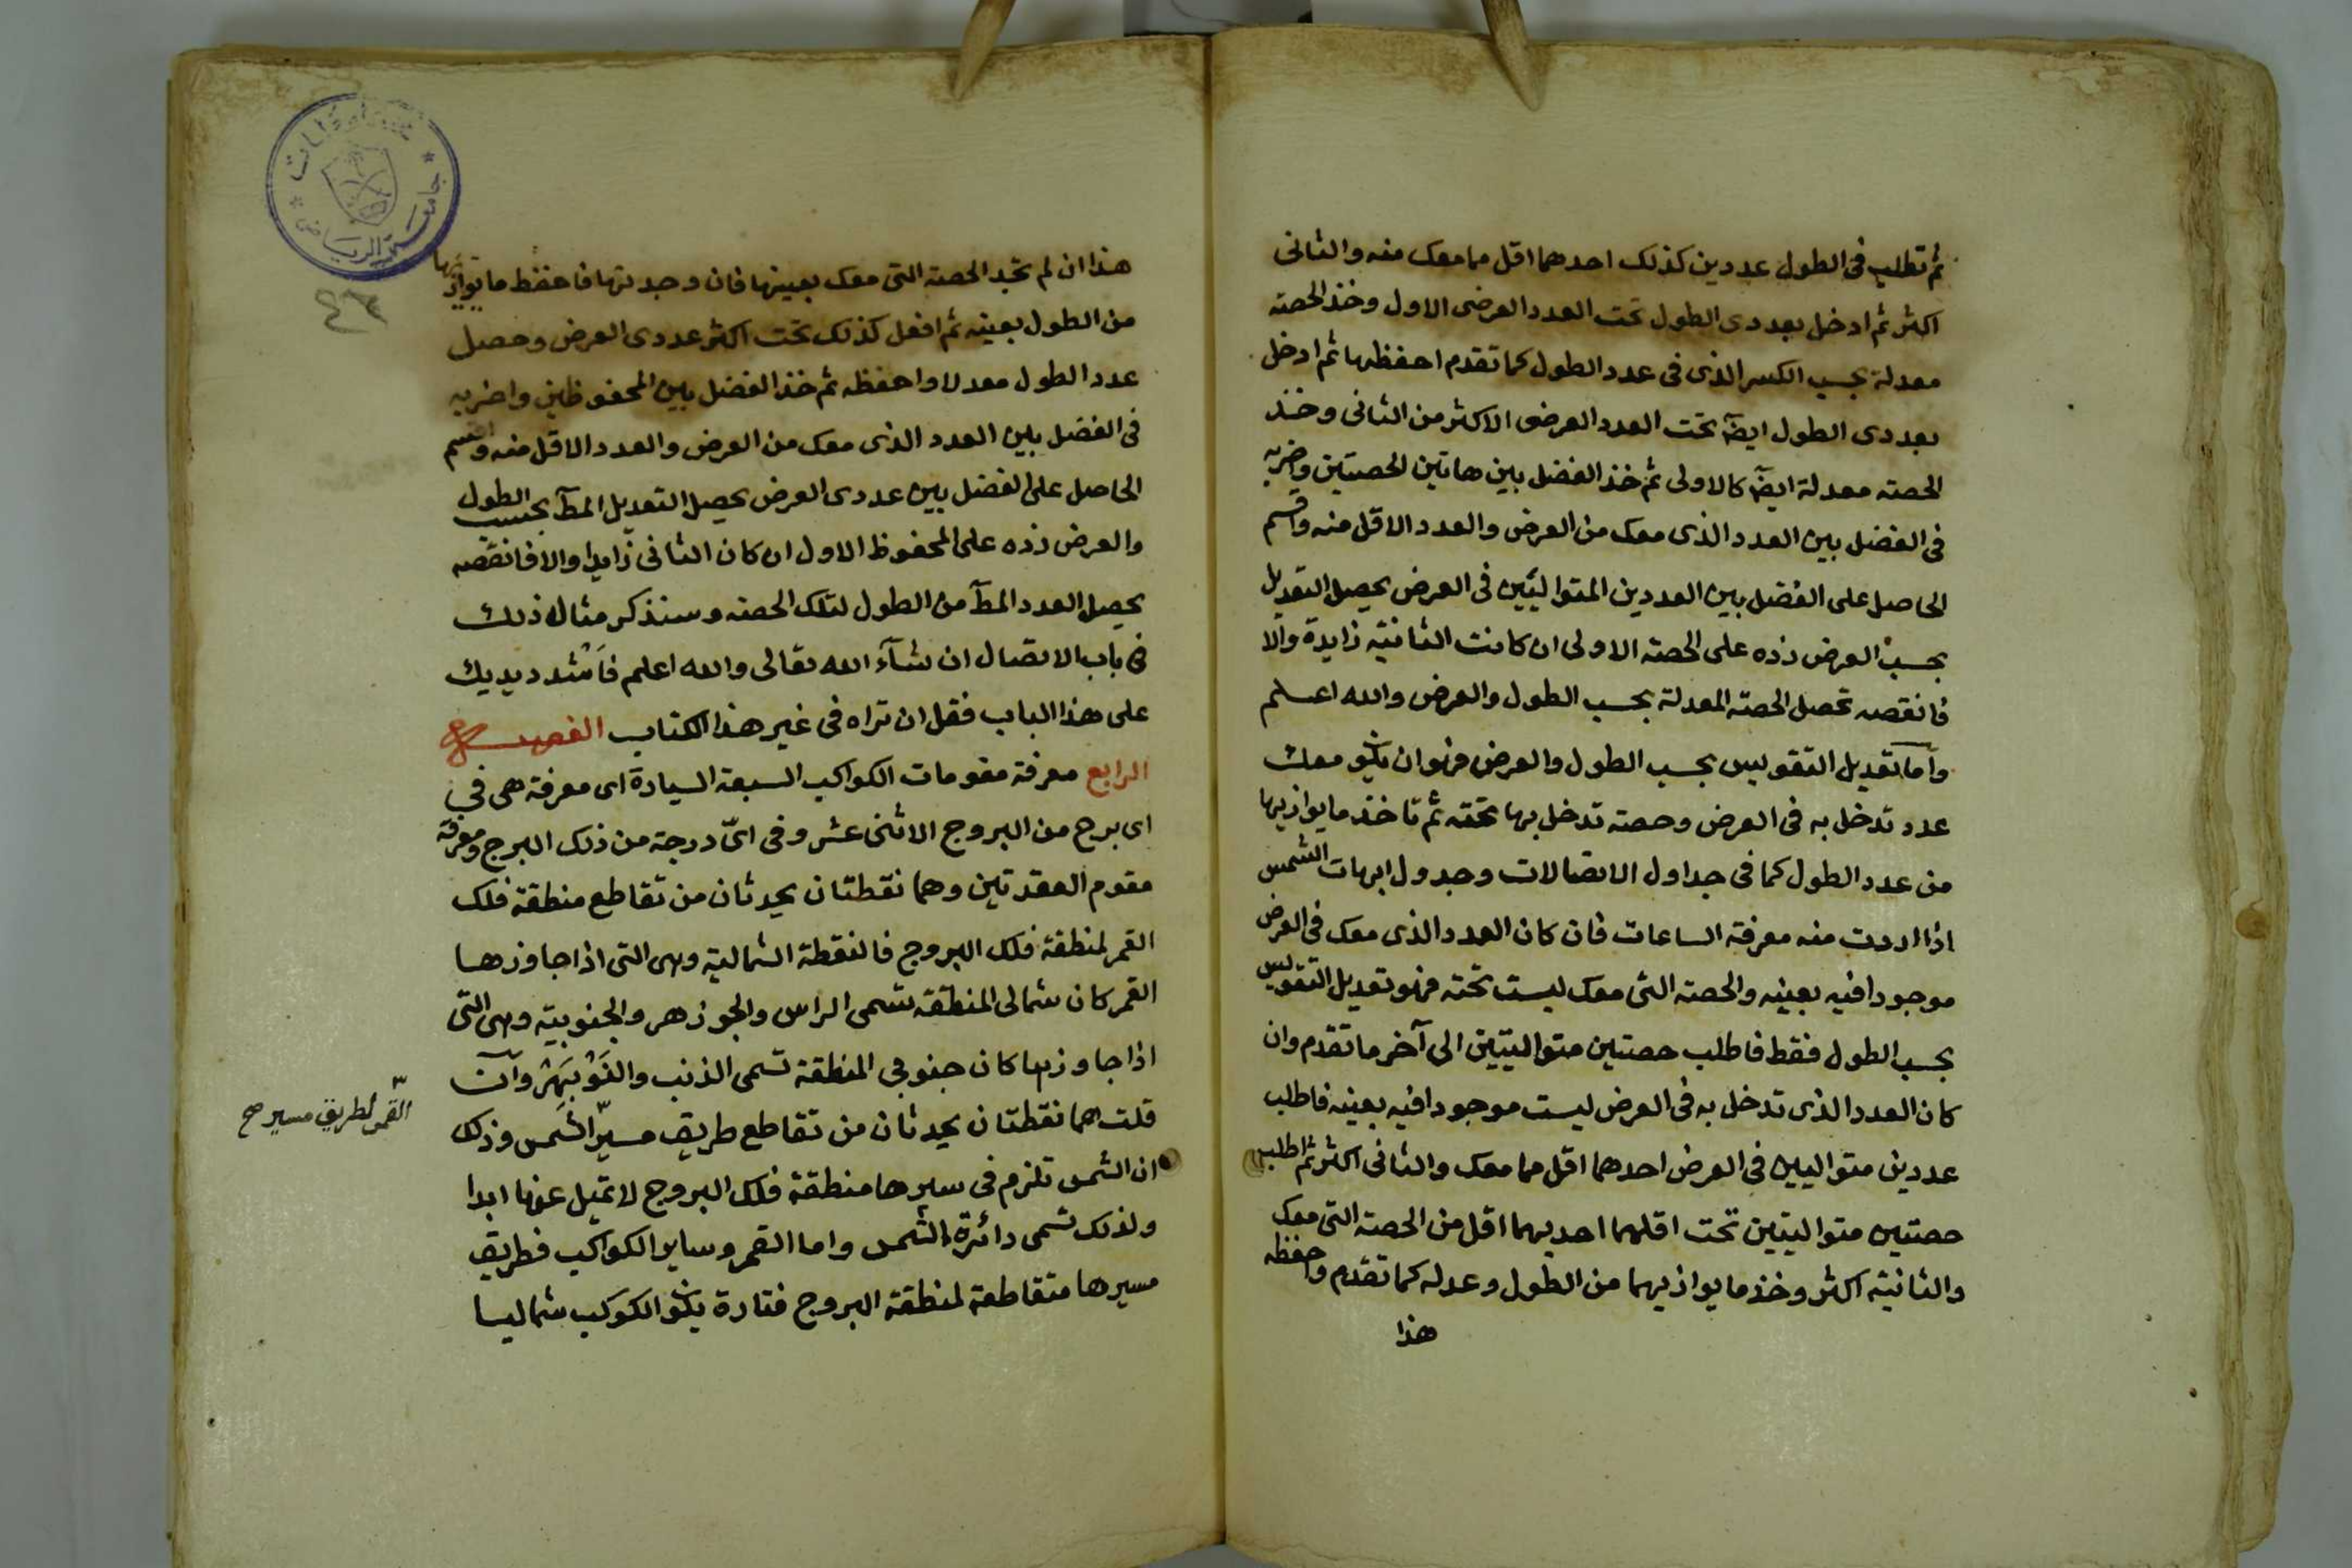 ثم تطلب فى الطول عددين كذلك احدهما اقل مما معك منه والثانى
اكثر ثم ادخل بعددى الطول تحت العدد العرضى الاول وخذ الحصته
معدلة بحسب الكسر الذى فى عدد الطول كما تقدم احفظها ثم ادخل
بعددى الطول ايضا تحت العدد العرضى الاكثر من الثانى وخذ
الحصته معدلة ايضا كالاولى ثم خذ الفضل بين هاتين الحصتين واضربه
فى الفضل بين العدد الذى معك من العرض والعدد الاقل منه واقسم
الحاصل على الفضل بين العددين المتواليين فى العرض يحصل التعديل
بحسب العرض زده على الحصته الاولى ان كانت الثانيته زايدة والا
فانقصه تحصل الحصته المعدلة بحسب الطول والعرض والله اعلم
واما تعديل التقويس بحسب الطول والعرض فهو ان يكو معك
عدد تدخل به فى العرض وحصته تدخل بها تحته ثم تاخذ ما يوازيها
من عدد الطول كما فى جداول الاتصالات وجدول ابهات الشمس
اذا اردت منه معرفة الساعات فان كان العدد الذى معك فى العرض
موجودا فيه بعينه والحصته التى معك ليست تحته فهو تعديل التقويس
بحسب الطول فقط فاطلب حصتين متواليتين الى آخر ما تقدم وان
كان العدد الذى تدخل به فى العرض ليست موجودا فيه بعينه فاطلب
عددين متواليين فى العرض احدهما اقل مما معك والثانى اكثر ثم اطلب
حصتين متواليتين تحت اقلهما احديهما اقل من الحصته التى معك
والثانيته اكثر وخذ ما يوازيهما من الطول وعدله كما تقدم واحفظه
هذا
هذا ان لم تجد الحصته التى معك بعينها فان وجدتها فاحفظ ما يوازيها
من الطول بعينه ثم افعل كذلك تحت اكثر عددى العرض وحصل
عدد الطول معدلا واحفظه ثم خذ الفضل بين المحفوظين واضربه
فى الفضل بين العدد الذى معك من العرض والعدد الاقل منه واقسم
الحاصل على الفضل بين عددى العرض يحصل التعديل المط بحسب الطول
والعرض زده على المحفوظ الاول ان كان الثانى زايدا والا فانقصه
يحصل العدد المط من الطول لتلك الحصته وسنذكر مثال ذلك
فى باب الاتصال ان شآء الله تعالى والله اعلم فاشدد يديك
على هذا الباب فقل ان تراه فى غير هذا الكتاب الفصل
الرابع معرفة مقومات الكواكب السبعة السيارة اى معرفة هى فى
اى برج من البروج الاثنى عشر وفى اىّ درجة من ذلك البرج ومعرفة
مقوم العقدتين وهما نقطتان يحدثان من تقاطع منطقة فلك
القمر لمنطقة فلك البروج فالنقطة الشمالية وهى التى اذا جاوزها
القمر كان شمالى المنطقة تسمى الراس والجوزهر والجنوبيته وهى التى
اذا جاوزها كان جنوبى المنطقة تسمى الذنب والنوبهر وان
قلت هما نقطتان يحدثان من تقاطع طريق مسير الشمس وذلك
القمر لطريق مسير صح
ان الشمس تلزم فى سيرها منطقة فلك البروج لا تميل عنها ابدا
ولذلك تسمى دائرة الشمس واما القمر وساير الكواكب فطريق
مسيرها متقاطعة لمنطقة البروج فتارة يكو الكوكب شماليا
جامعة الرياض